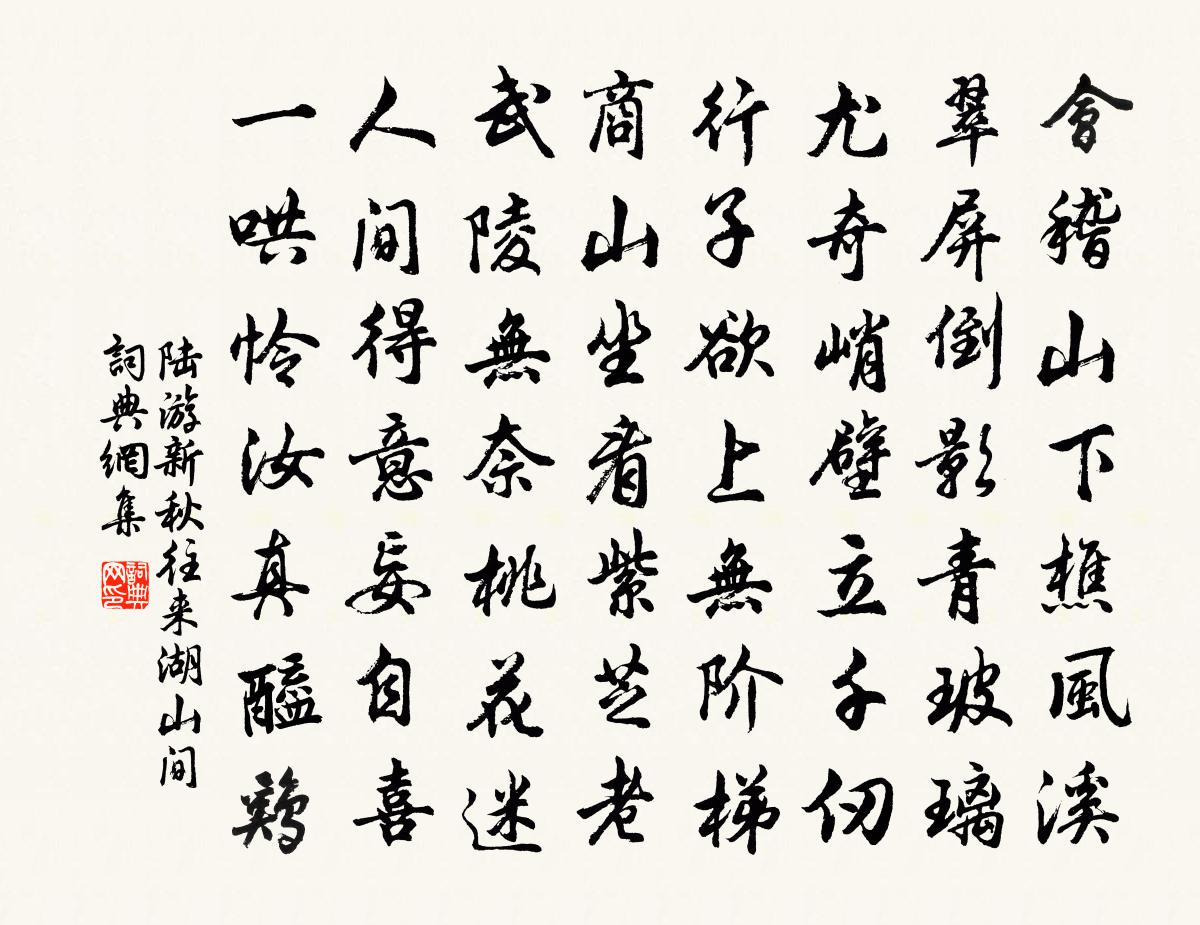 會稽山下樵風溪
翠屏倒影青玻璃
尤奇峭壁立千仞
行子欲上無阶梯
商山坐看紫芝老
武陵無奈桃花迷
人间得意妄自喜
一哄怜汝真醯鷄
陆游新秋往来湖山间
詞典網集
詞典网印